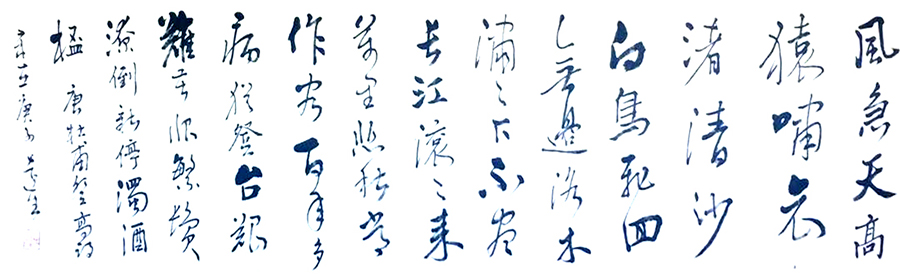 風急天高
猿嘯哀
渚清沙
白鳥飛回
無邊落木
瀟〻下不盡
長江滾〻来
萬里悲秋常
作客百年多
病獨登台艱
難苦恨繁鬢
潦倒新停濁酒
唐杜甫登高詩
庚子